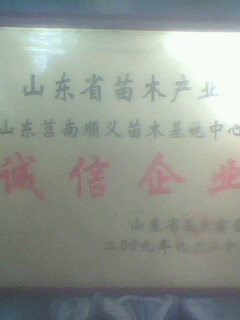 山东省苗木产业
山东莒南顺义苗木基地中心
诚信企业
山东省苗木
二00九年九月二十